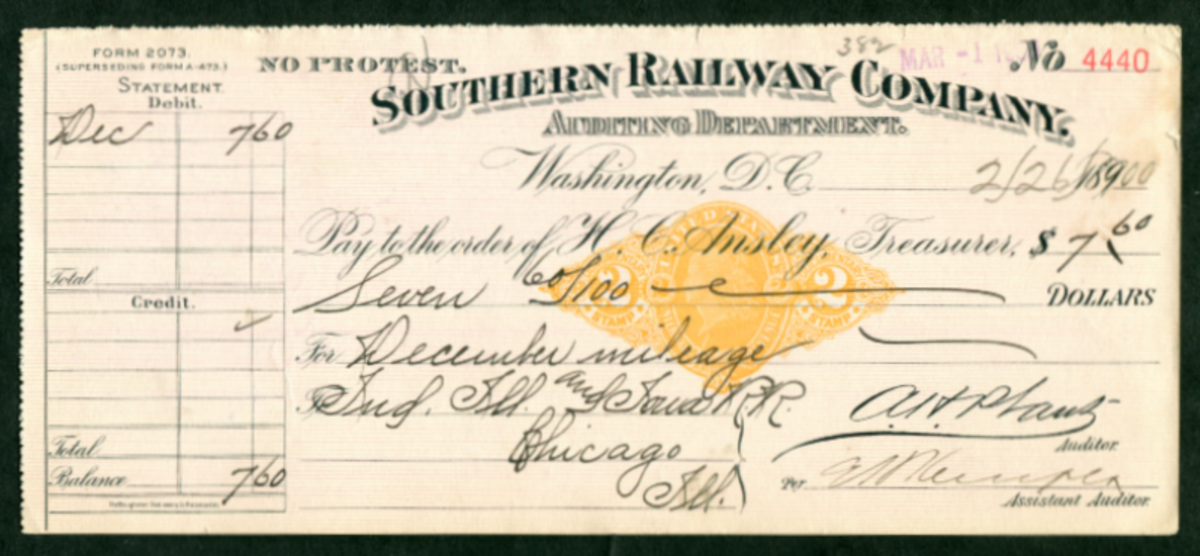 FORM 2073.
(SUPERSEDING FORM A-473.)
STATEMENT.
Debit.
Dec 760
Total
Credit.
Total
Balance 760
NO PROTEST.
382
MAR -1
No 4440
SOUTHERN RAILWAY COMPANY.
AUDITING DEPARTMENT.
Washington, D.C. 2/26/18900
Pay to the order of H. C. Ansley, Treasurer, $ 7.60
UNITED STATES
2 STAMP 2 STAMP
Seven 60/100 DOLLARS
For December mileage
To Ind. Ill. and Iowa R.R.
Chicago
Ill.
A.H. Plant
Auditor.
Per
Assistant Auditor.